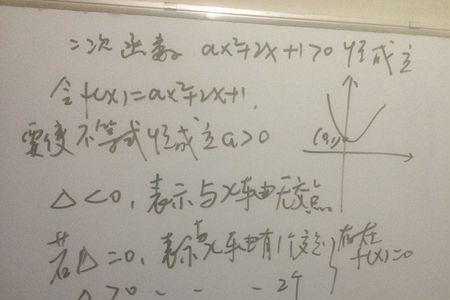 二次函数 ax²+2x+1>0 恒成立
令f(x)=ax²+2x+1,
要使不等式恒成立a>0
(0,1)
△<0,表示与x轴无交点
若△=0,表示与x轴有1个交点 } 存在
f(x)=0
△>0 - - - 2个